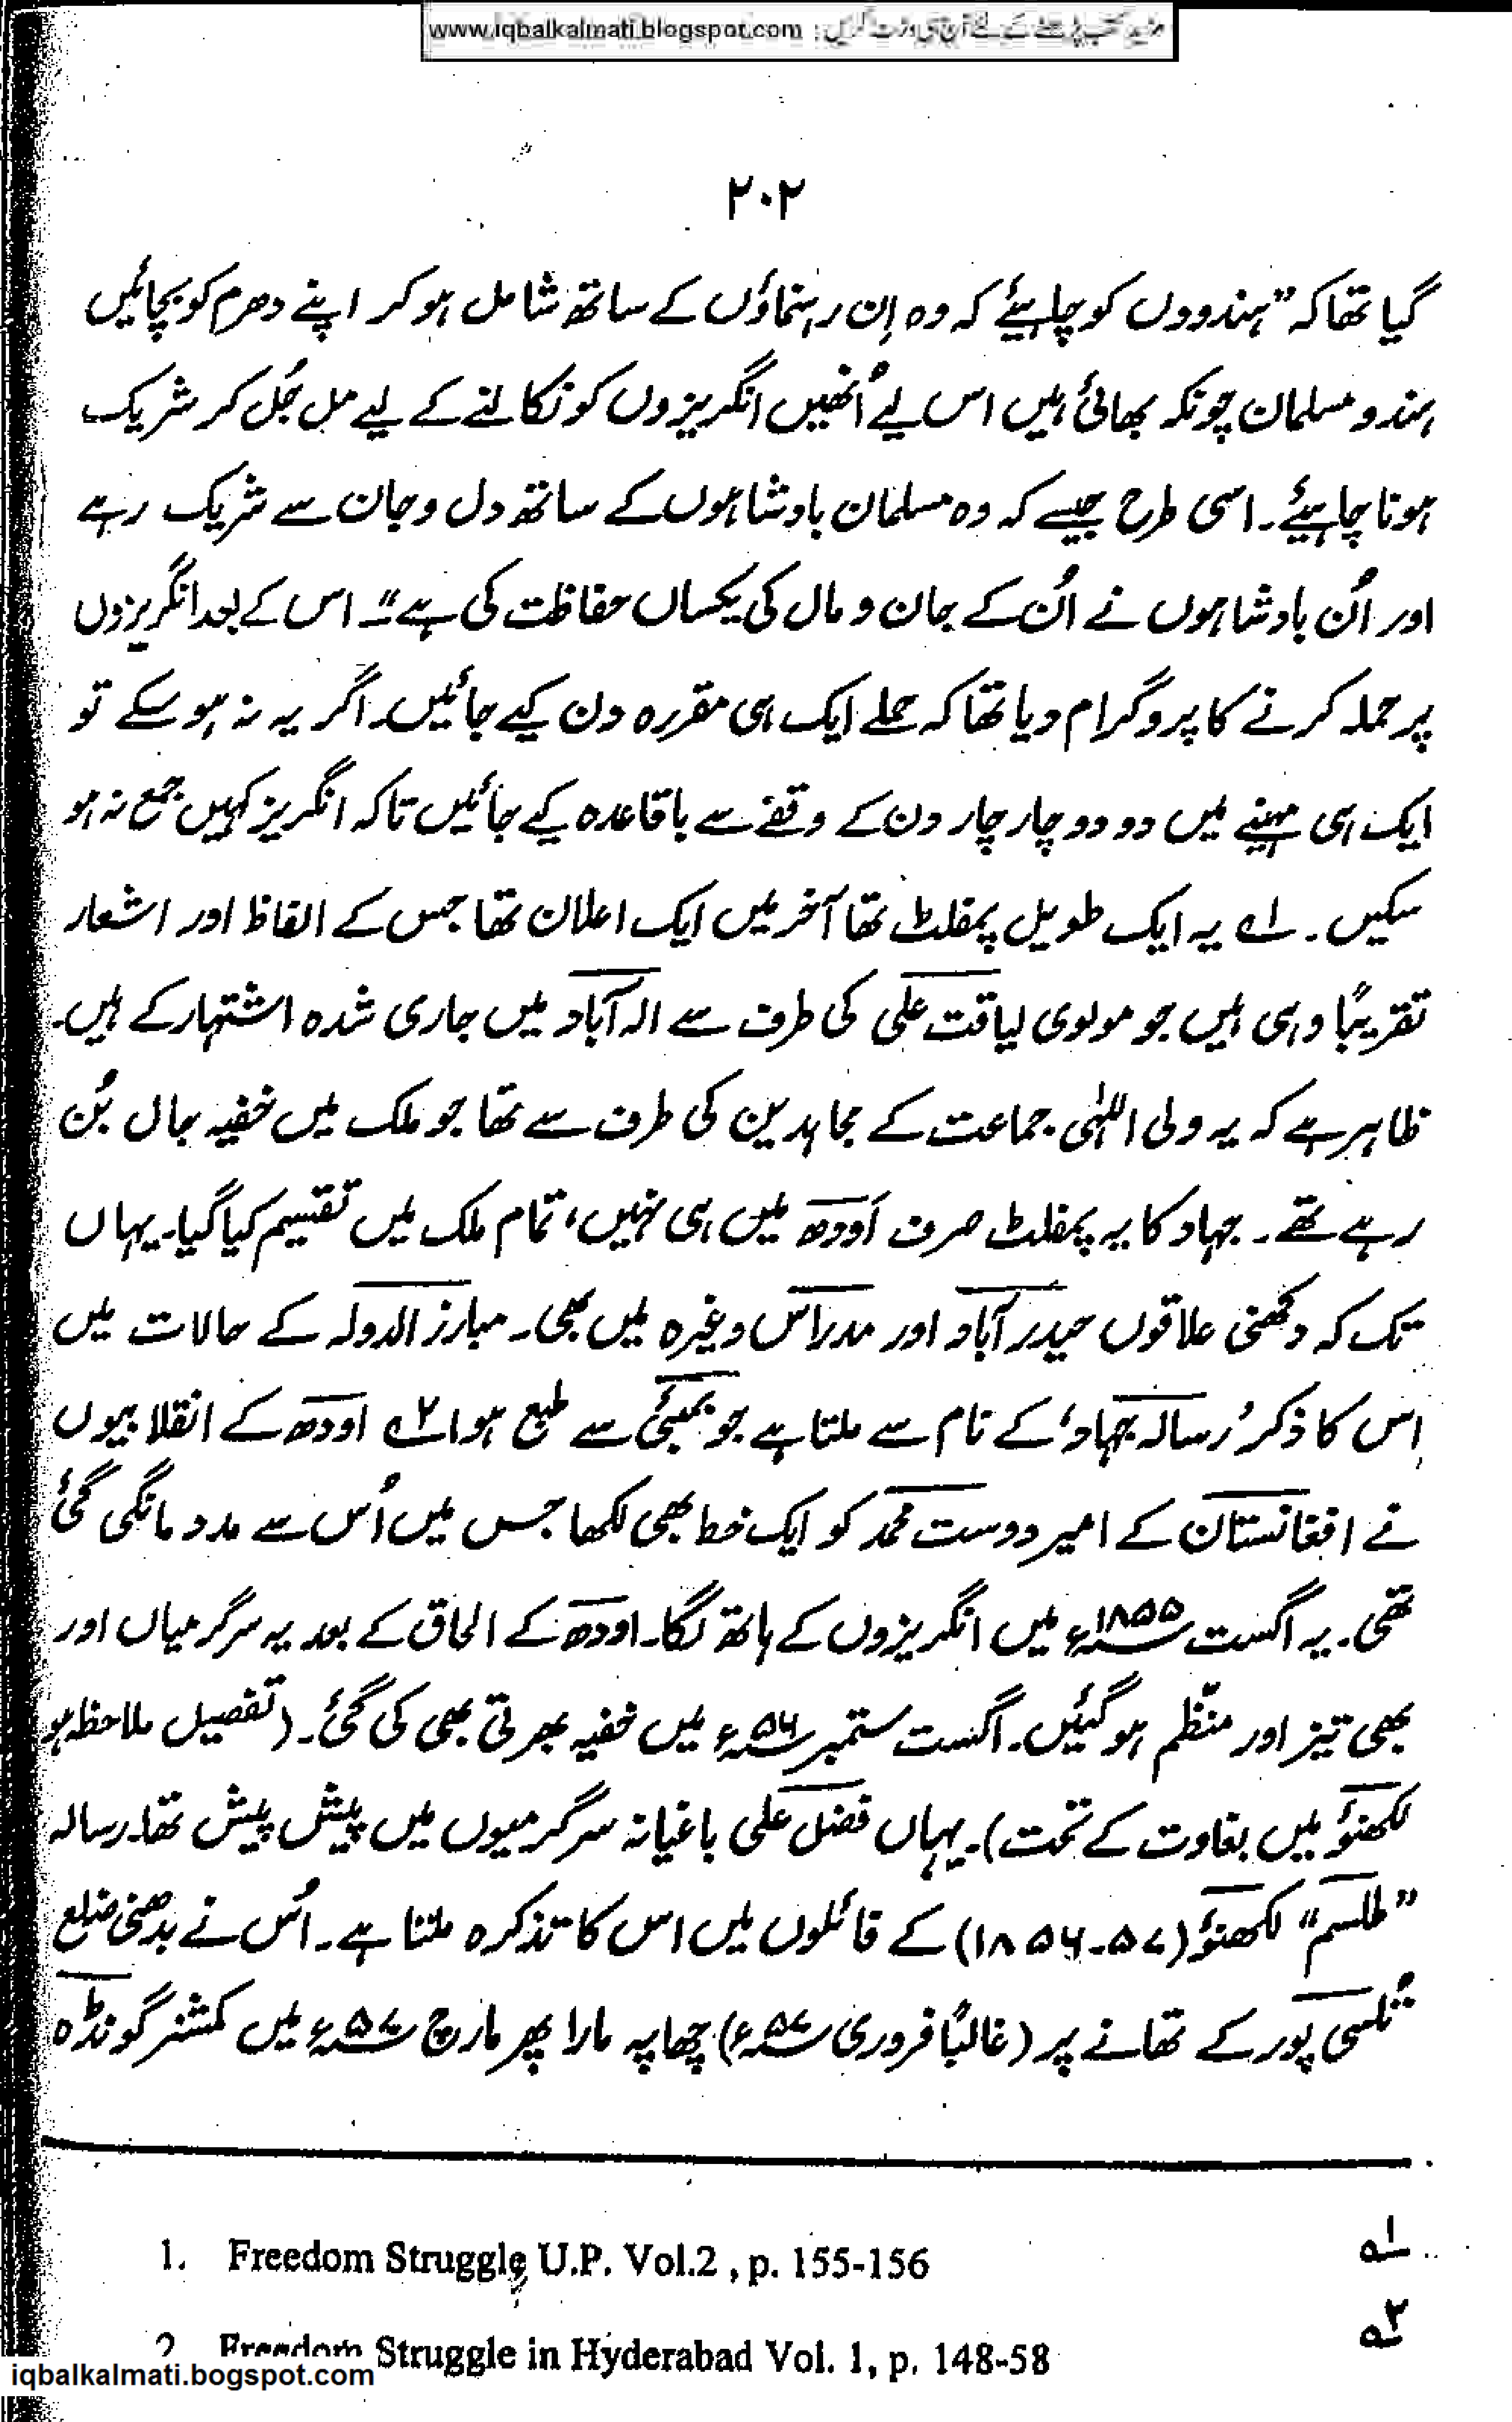 www.iqbalkalmati.blogspot.com : مزید کتب پڑھنے کے لئے آج ہی وزٹ کریں
۲۰۲
گیا تھا کہ ”ہندووں کو چاہیئے کہ وہ اِن رہنماؤں کے ساتھ شامل ہو کر اپنے دھرم کو بچائیں
ہندو مسلمان چونکہ بھائی ہیں اس لیے اُنھیں انگریزوں کو نکالنے کے لیے مل جُل کر شریک
ہونا چاہیئے۔ اسی طرح جیسے کہ وہ مسلمان بادشاہوں کے ساتھ دل و جان سے شریک رہے
اور اُن بادشاہوں نے اُن کے جان و مال کی یکساں حفاظت کی ہے“۔ اس کے بعد انگریزوں
پر حملہ کرنے کا پروگرام دیا تھا کہ حملے ایک ہی مقررہ دن کیے جائیں۔ اگر یہ نہ ہو سکے تو
ایک ہی مہینے میں دو دو چار چار دن کے وقفے سے باقاعدہ کیے جائیں تاکہ انگریز کہیں جمع نہ ہو
سکیں۔ ۱؎ یہ ایک طویل پمفلٹ تھا آخر میں ایک اعلان تھا جس کے الفاظ اور اشعار
تقریباً وہی ہیں جو مولوی لیاقت علی کی طرف سے الہ آباد میں جاری شدہ اشتہار کے ہیں۔
ظاہر ہے کہ یہ ولی اللہٰی جماعت کے مجاہدین کی طرف سے تھا جو ملک میں خفیہ جال بُن
رہے تھے۔ جہاد کا یہ پمفلٹ صرف اَودھ میں ہی نہیں، تمام ملک میں تقسیم کیا گیا۔ یہاں
تک کہ دکھنی علاقوں حیدر آباد اور مدراس وغیرہ میں بھی۔ مبارز الدولہ کے حالات میں
اِس کا ذکر ’رسالہ جہاد‘ کے نام سے ملتا ہے جو بمبئی سے طبع ہوا ۲؎ اودھ کے انقلابیوں
نے افغانستان کے امیر دوست محمد کو ایک خط بھی لکھا جس میں اُس سے مدد مانگی گئی
تھی۔ یہ اگست ۱۸۵۵ء میں انگریزوں کے ہاتھ لگا۔ اودھ کے الحاق کے بعد یہ سرگرمیاں اور
بھی تیز اور منظّم ہو گئیں۔ اگست ستمبر ۵۶ء میں خفیہ بھرتی بھی کی گئی۔ (تفصیل ملاحظہ ہو
لکھنؤ میں بغاوت کے تحت)۔ یہاں فضل علی باغیانہ سرگرمیوں میں پیش پیش تھا۔ رسالہ
”طلسم“ لکھنؤ (۵۷۔۱۸۵۶) کے فائلوں میں اس کا تذکرہ ملتا ہے۔ اُس نے بدھنی ضلع
تُلسی پور کے تھانے پر (غالباً فروری ۵۷ء) چھاپہ مارا پھر مارچ ۵۷ء میں کمشنر گونڈہ
1. Freedom Struggle U.P. Vol.2 , p. 155-156 ۱؎
2. Freedom Struggle in Hyderabad Vol. 1, p. 148-58 ۲؎
iqbalkalmati.bogspot.com